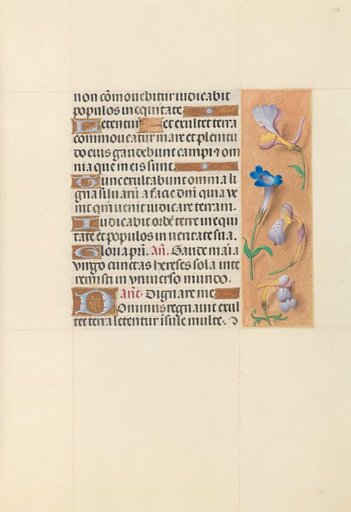 non cōmovebitur iudicabit
populos in equitate
Letentur et exultet terra
commoueatur mare et plenitu
do eius gaudebunt campi et om
nia que in eis sunt
Tunc exultabunt omnia li
gna siluarū a facie dn̄i quia ve
nit qm̄ uenit iudicare terram.
Iudicabit orbē terre in equi
tate et populos in ueritate sua.
Gloria pri. An̄. Gaude maria
virgo cunctas hereses sola inte
remisti in vniuerso mundo.
An̄. Dignare me
Dominus regnauit exul
tet terra letentur insule multe.